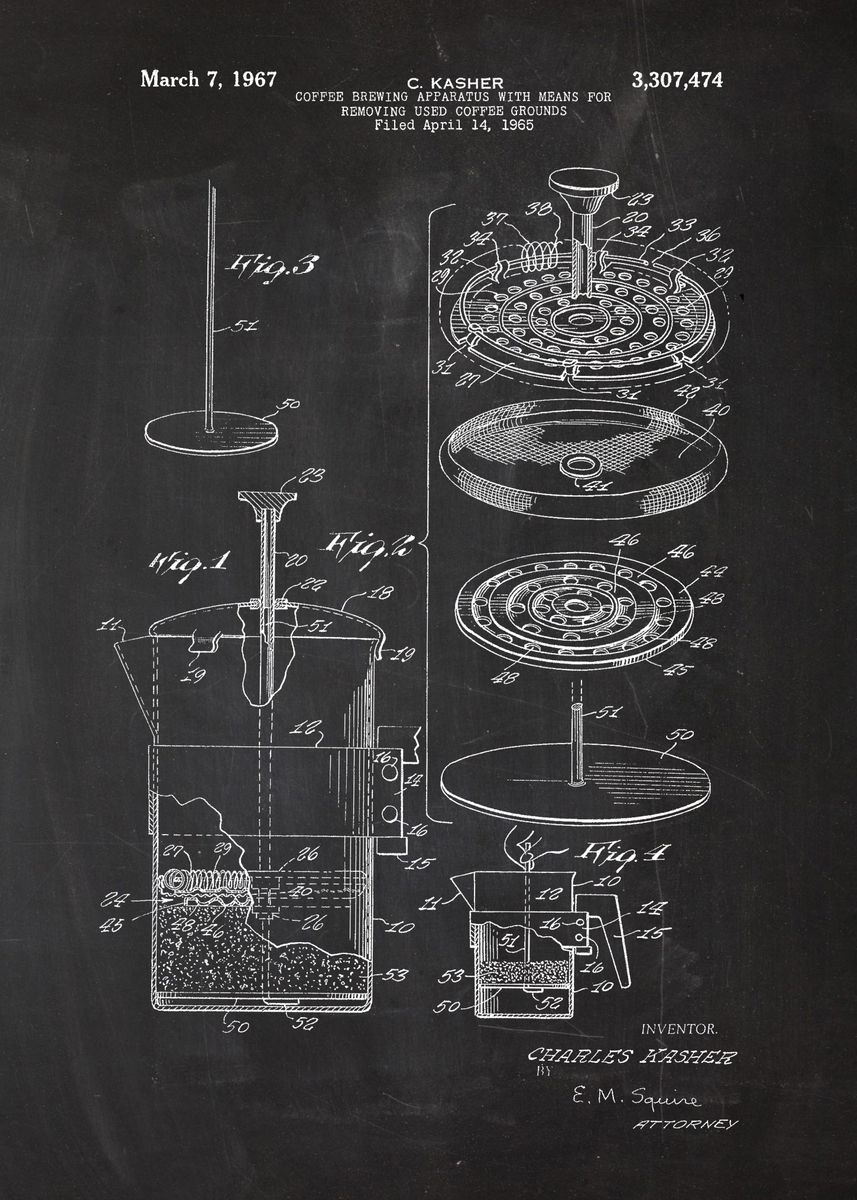 March 7, 1967 C. KASHER 3,307,474
COFFEE BREWING APPARATUS WITH MEANS FOR
REMOVING USED COFFEE GROUNDS
Filed April 14, 1965
Fig.3
51
50
Fig.2
23
20
38
37
34
34
33
36
32
32
29
29
31
27
31
31
42
40
41
46
46
44
43
48
48
45
51
50
Fig.1
23
20
22
18
51
11
19
19
12
16
14
16
15
27
29
26
24
40
45
48
46
26
10
53
50
52
Fig.4
10
11
12
14
16
15
51
16
53
50
52
10
INVENTOR.
CHARLES KASHER
BY
E. M. Squire
ATTORNEY